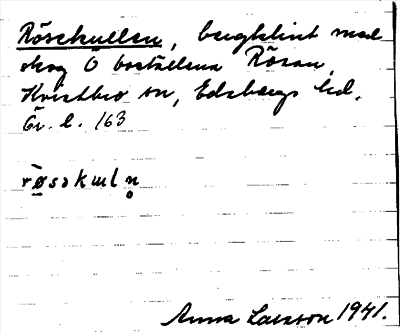 Rösekullen, bergklint med
skog Ö bostället Rösan,
Kvistbro sn, Edsbergs hd.
Ör. l. 163
rø̄sɔkɯln̥
Anna Larsson 1941.